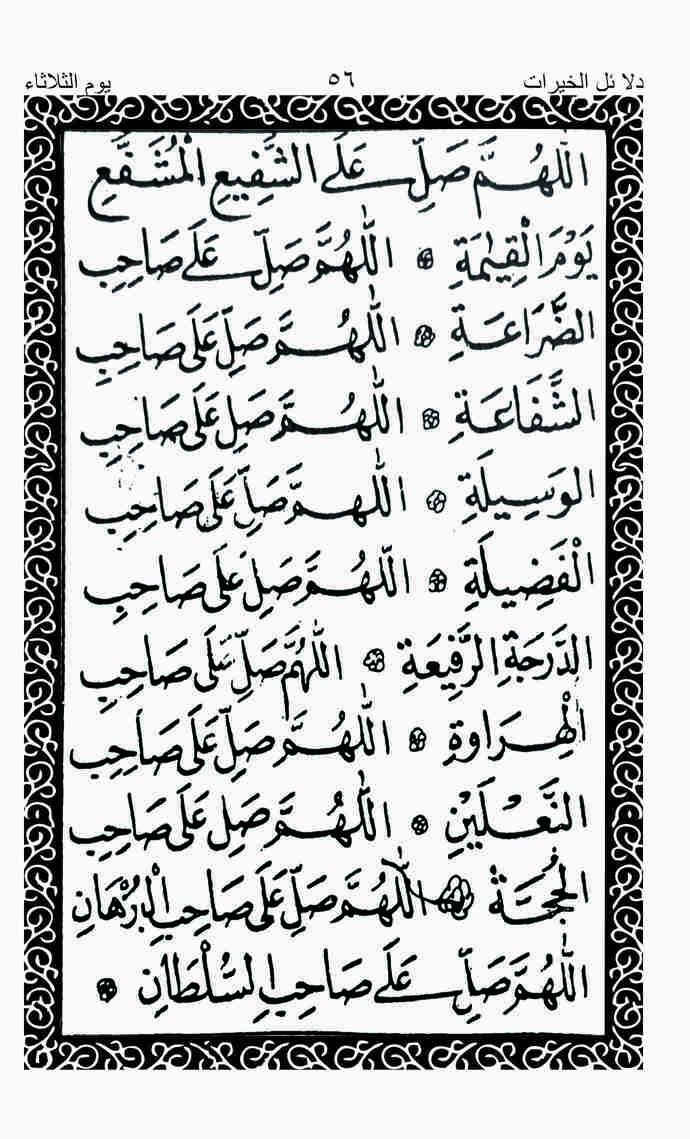 دلائل الخيرات ٥٦ يوم الثلاثاء
اَللّٰهُمَّ صَلِّ عَلَى الشَّفِيعِ الْمُشَفَّعِ
يَوْمَ الْقِيٰمَةِ اَللّٰهُمَّ صَلِّ عَلَى صَاحِبِ
الضَّرَاعَةِ اَللّٰهُمَّ صَلِّ عَلَى صَاحِبِ
الشَّفَاعَةِ اَللّٰهُمَّ صَلِّ عَلَى صَاحِبِ
الوَسِيلَةِ اَللّٰهُمَّ صَلِّ عَلَى صَاحِبِ
الْفَضِيلَةِ اَللّٰهُمَّ صَلِّ عَلَى صَاحِبِ
الدَّرَجَةِ الرَّفِيعَةِ اَللّٰهُمَّ صَلِّ عَلَى صَاحِبِ
الْهِرَاوَةِ اَللّٰهُمَّ صَلِّ عَلَى صَاحِبِ
النَّعْلَيْنِ اَللّٰهُمَّ صَلِّ عَلَى صَاحِبِ
الْحُجَّةِ اَللّٰهُمَّ صَلِّ عَلَى صَاحِبِ الْبُرْهَانِ
اَللّٰهُمَّ صَلِّ عَلَى صَاحِبِ السُّلْطَانِ